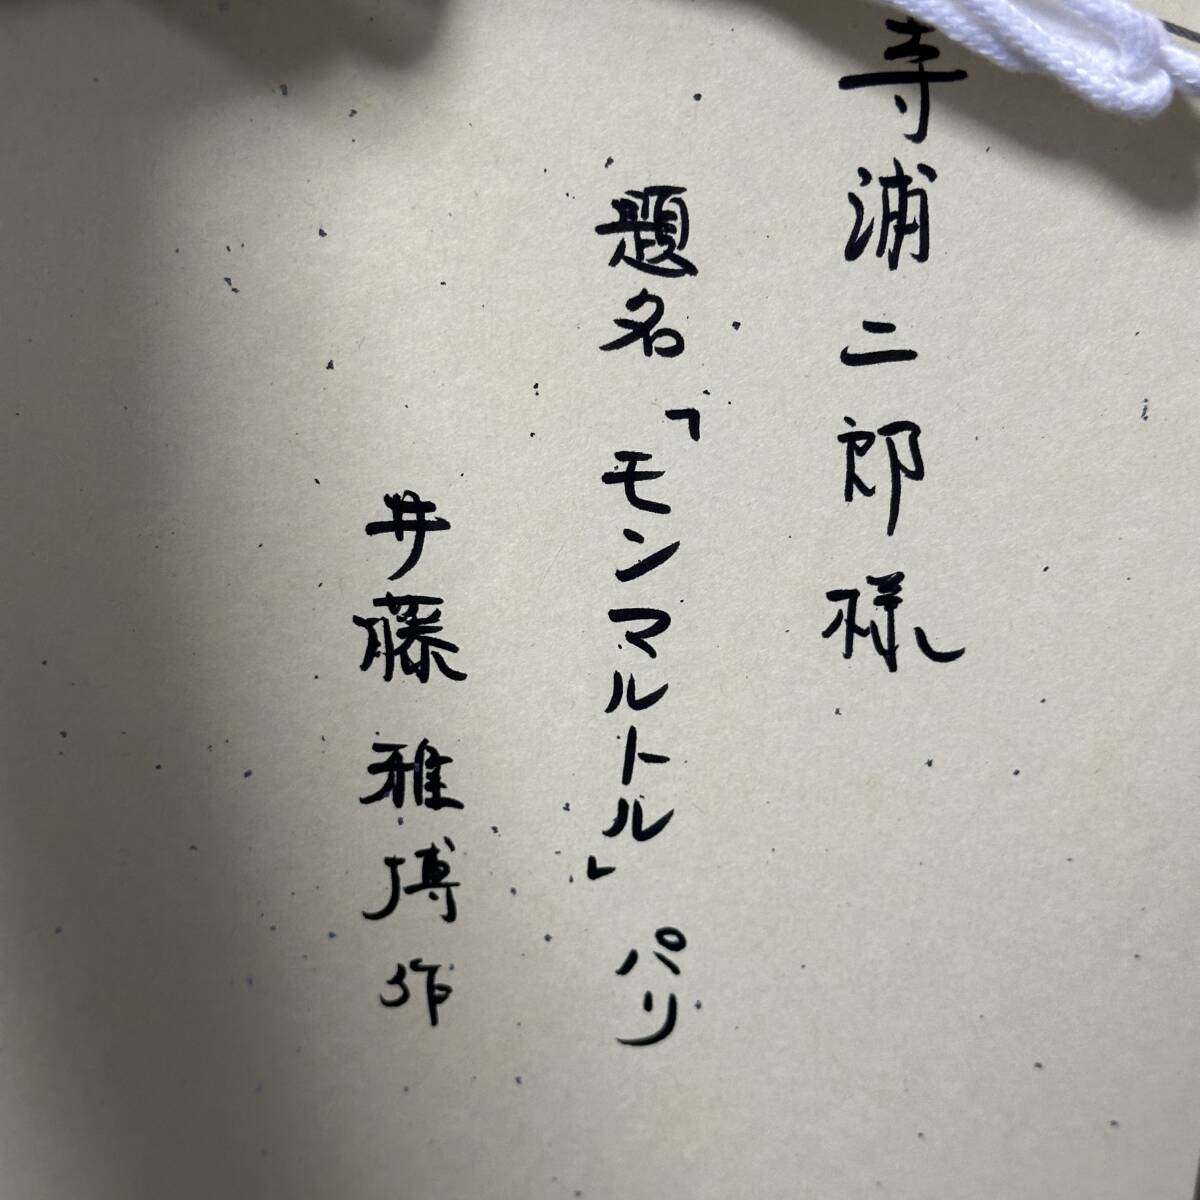 寺浦二郎様
題名「モンマルトル」パリ
井藤雅博作